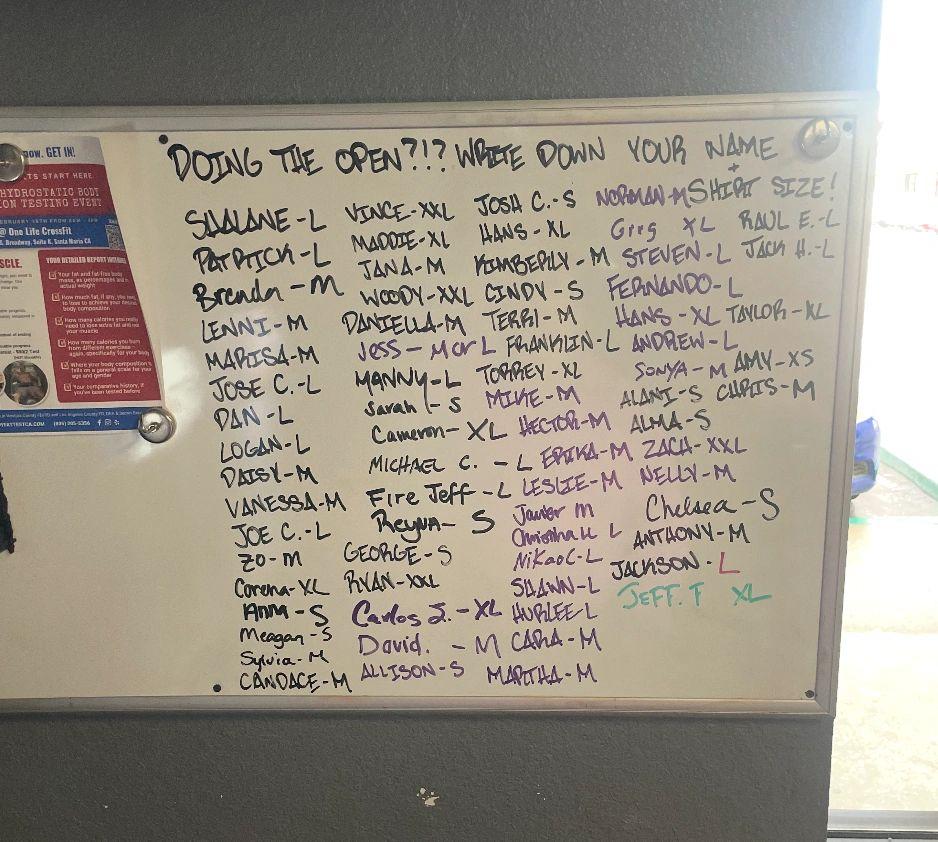 DOING THE OPEN?!? WRITE DOWN YOUR NAME
+
SHIRT SIZE!
SHALANE-L
PATRICK-L
Brenda-M
LENNI-M
MARISA-M
JOSE C.-L
DAN-L
LOGAN-L
DAISY-M
VANESSA-M
JOE C.-L
ZO-M
Corena-XL
Anna-S
Meagan-S
Sylvia-M
CANDACE-M
VINCE-XXL
MADDIE-XL
JANA-M
WOODY-XXL
DANIELLA-M
Jess-M or L
MANNY-L
Sarah-S
Cameron-XL
MICHAEL C.-L
Fire Jeff-L
Reyna-S
GEORGE-S
RYAN-XXL
Carlos J.-XL
David.-M
ALLISON-S
JOSH C.-S
HANS-XL
KIMBERLY-M
CINDY-S
TERRI-M
FRANKLIN-L
TORREY-XL
MIKE-M
HECTOR-M
ERIKA-M
LESLIE-M
Javier M
L
Nikao C-L
SHAWN-L
HURLEE-L
CARA-M
MARTHA-M
NORMAN-M
Greg XL
STEVEN-L
FERNANDO-L
HANS-XL
ANDREW-L
SONYA-M
ALANI-S
ALMA-S
ZACH-XXL
NELLY-M
Chelsea-S
ANTHONY-M
JACKSON-L
JEFF. F XL
RAUL E.-L
JACK H.-L
TAYLOR-XL
AMY-XS
CHRIS-M
now. GET IN!
TS START HERE.
HYDROSTATIC BODY
ION TESTING EVENT
@ One Life CrossFit
Broadway, Suite K, Santa Maria CA
SCLE.
YOUR DETAILED REPORT
Your fat and fat-free body
mass, as percentages and
actual weight
How much fat, if any, you need
to lose to achieve your desired
body composition
How many calories you
need to lose extra fat and
your muscle
How many calories you burn
from different exercises-
again, specifically for your body
Where your body composition
falls on a general scale for your
age and gender
Your comparative history, if
you've been tested before